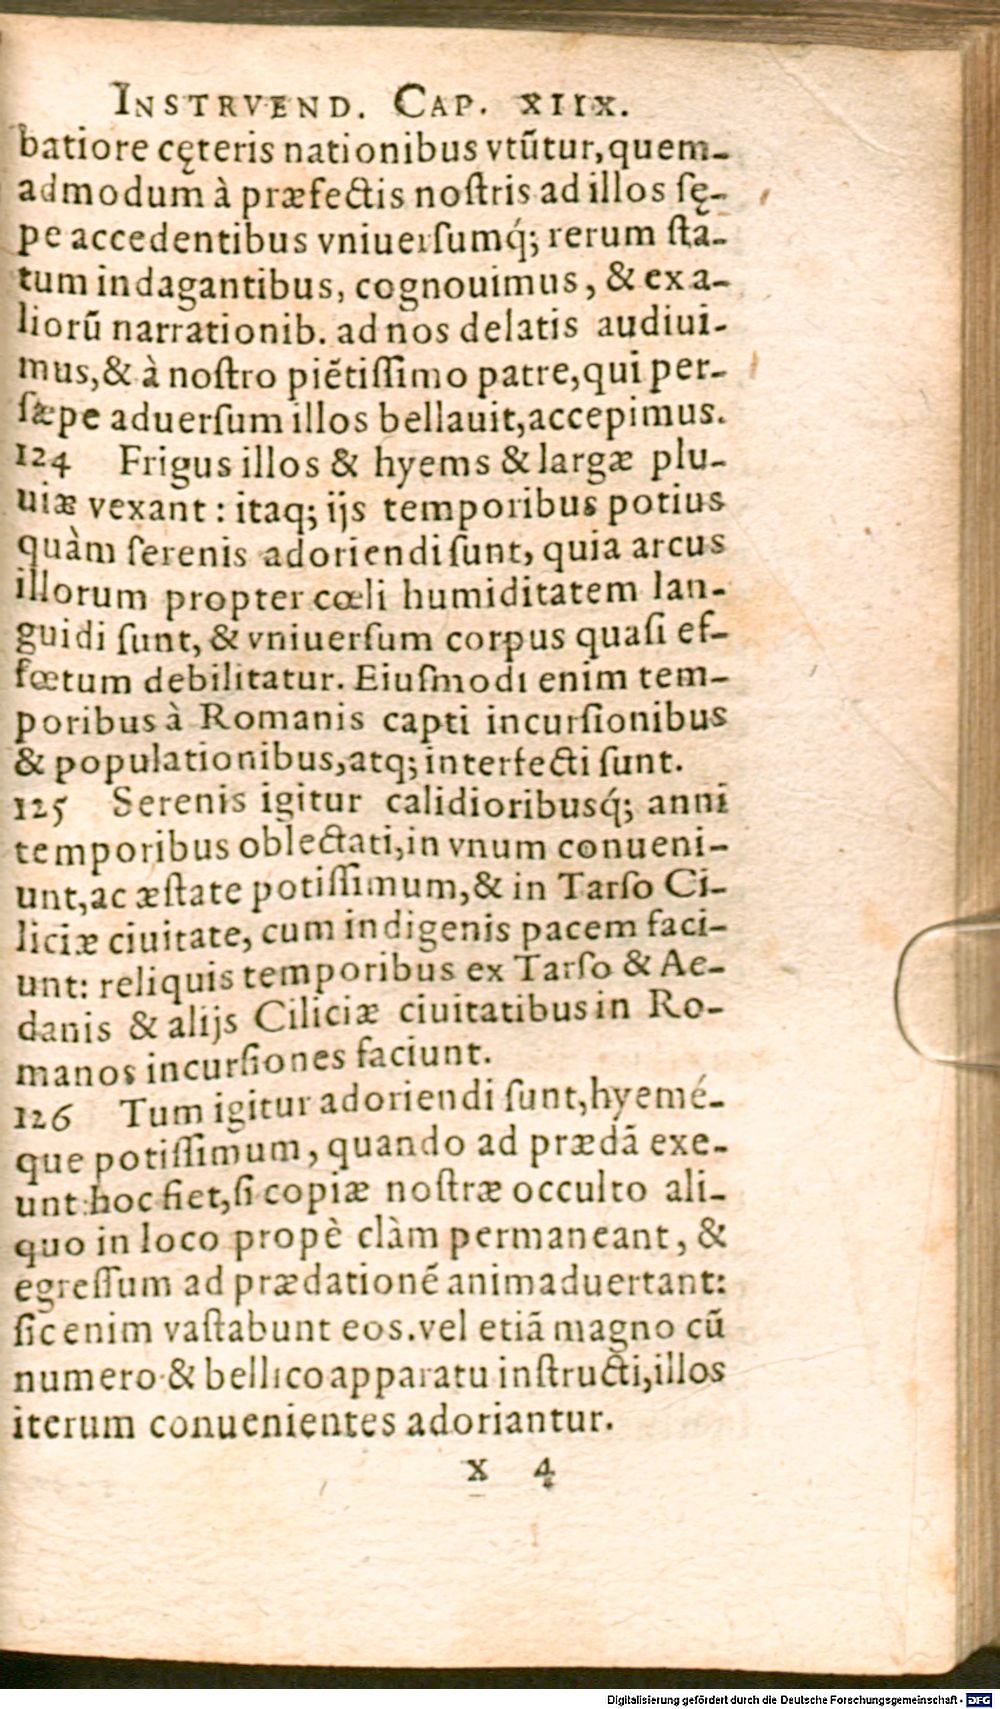 INSTRVEND. CAP. XIIX.
batiore cęteris nationibus vtũtur, quem-
admodum à præfectis nostris ad illos sę-
pe accedentibus vniuersumq́; rerum sta-
tum indagantibus, cognouimus, & ex a-
liorũ narrationib. ad nos delatis audiui-
mus, & à nostro piẽtissimo patre, qui per-
sæpe aduersum illos bellauit, accepimus.
124 Frigus illos & hyems & largæ plu-
uiæ vexant: itaq; ijs temporibus potius
quàm serenis adoriendi sunt, quia arcus
illorum propter cœli humiditatem lan-
guidi sunt, & vniuersum corpus quasi ef-
fœtum debilitatur. Eiusmodi enim tem-
poribus à Romanis capti incursionibus
& populationibus, atq; interfecti sunt.
125 Serenis igitur calidioribusq́; anni
temporibus oblectati, in vnum conueni-
unt, ac æstate potissimum, & in Tarso Ci-
liciæ ciuitate, cum indigenis pacem faci-
unt: reliquis temporibus ex Tarso & Ae-
danis & alijs Ciliciæ ciuitatibus in Ro-
manos incursiones faciunt.
126 Tum igitur adoriendi sunt, hyemé-
que potissimum, quando ad prædã exe-
unt: hoc fiet, si copiæ nostræ occulto ali-
quo in loco propè clàm permaneant, &
egressum ad prædationẽ animaduertant:
sic enim vastabunt eos. vel etiã magno cũ
numero & bellico apparatu instructi, illos
iterum conuenientes adoriantur.
X 4
Digitalisierung gefördert durch die Deutsche Forschungsgemeinschaft - DFG